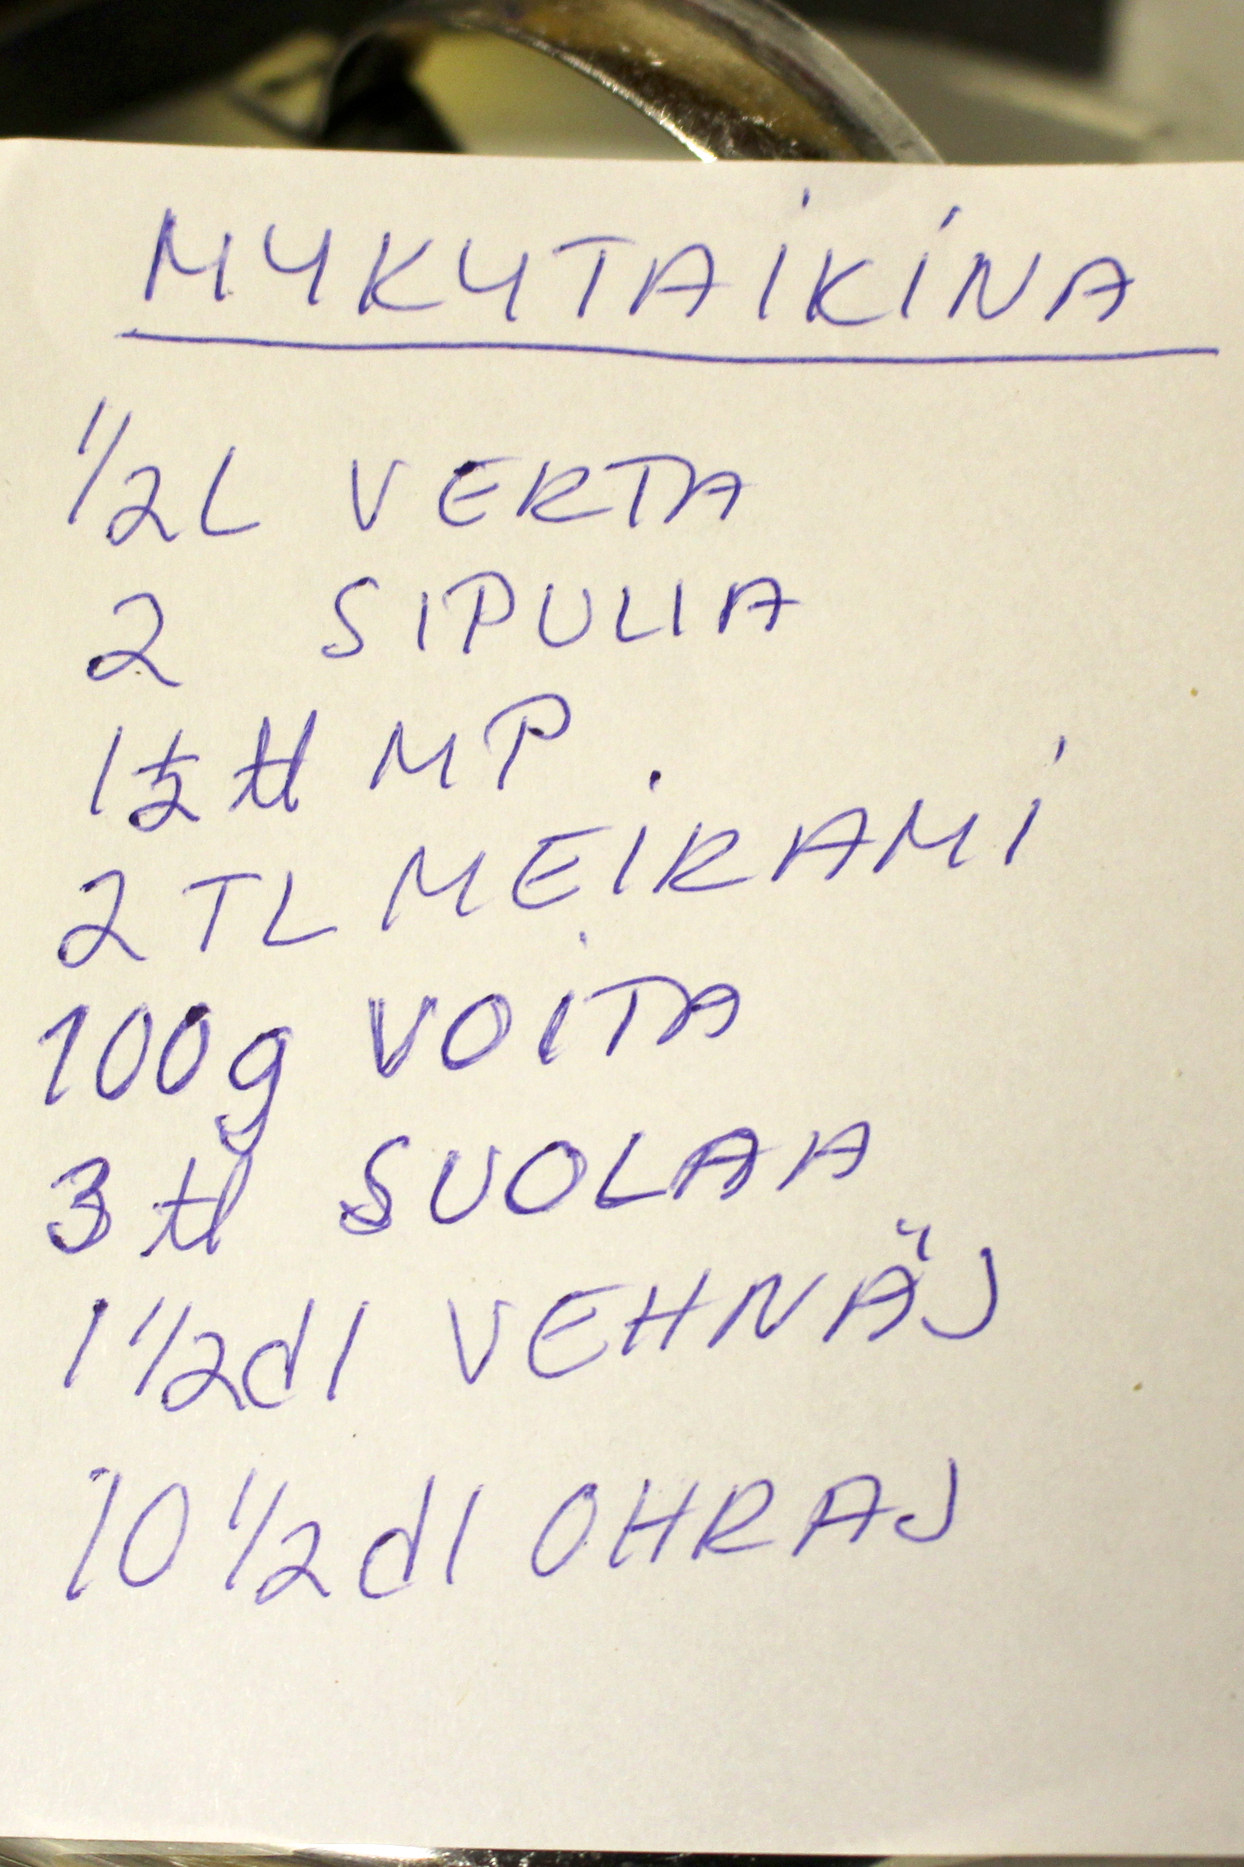 MYKYTAIKINA
1/2 L VERTA
2 SIPULIA
1 1/2 tl MP
2 TL MEIRAMI
100g VOITA
3 tl SUOLAA
1 1/2 dl VEHNÄJ
10 1/2 dl OHRAJ